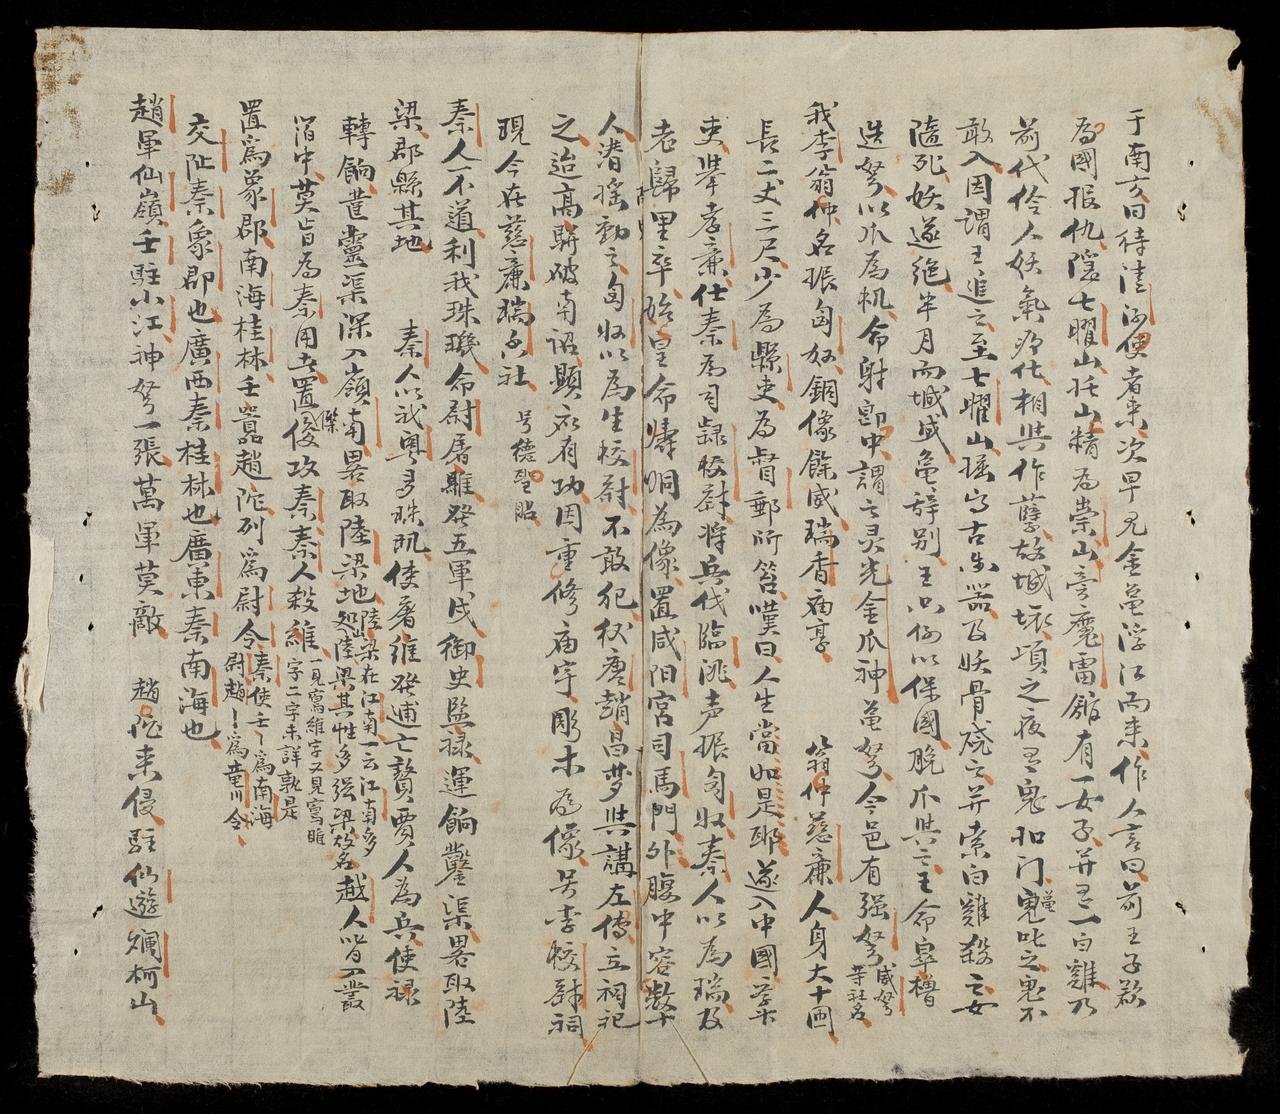 于南方曰待清江使者来次早見金亀浮江而来作人言曰前王子欲
為國报仇隱七曜山托山精為崇山旁魔雷舘有一女子并一白雞乃
前代伶人妖氣所化相與作孽故城壊頃之夜有鬼扣门亀叱之鬼不
敢入因謂王追之至七曜山掘得古樂器及妖骨燒之并索白雞殺之女
隨死妖遂絶半月而城成亀辞别王以保國脱爪與之王命皐櫓
造弩以爪為机命射即中謂之灵光金爪神亀弩今邑有强弩 咸弩等社名
我李翁仲名振匈奴銅像餘威瑞香庙享 翁仲慈廉人身大十囲
長二丈三尺少為縣吏為督郵所笞嘆曰人生當如是耶遂入中國業
吏挙孝廉仕秦為司隷校尉将兵伐臨洮声振匈奴秦人以為瑞及
老歸里卒始皇命鑄銅為像置咸阳宮司馬門外腹中容數十
人潜摇動之匈奴以為生校尉不敢犯秋唐趙昌梦與講左傳立祠祀
之迨高駢破南詔顯有功因重修庙宇彫木為像号李校尉祠
現今在慈廉瑞香社 号德聖昭
秦人不道利我珠璣命尉屠雎發五軍戍御史監禄運餉鑿渠畧取陸
梁郡縣其地 秦人以我粤多珠玑使屠維發逋亡贅賈人為兵使禄
轉餉鑿靈渠深入嶺南畧取陸梁地 陸梁在江南一云江南多山陸梁其性多强梁故名 越人皆入叢
箔中莫肯為秦用共置俊傑攻秦秦人殺維 一見寫維字又見寫雎字二字未詳孰是
置為象郡南海桂林壬囂趙陀列為尉令 秦使壬〡為南海尉趙〡為竜川令
交阯秦象郡也廣西秦桂林也廣東秦南海也
趙軍仙嶺壬駐小江神弩一張萬軍莫敵 趙陀来侵駐仙遊爛柯山